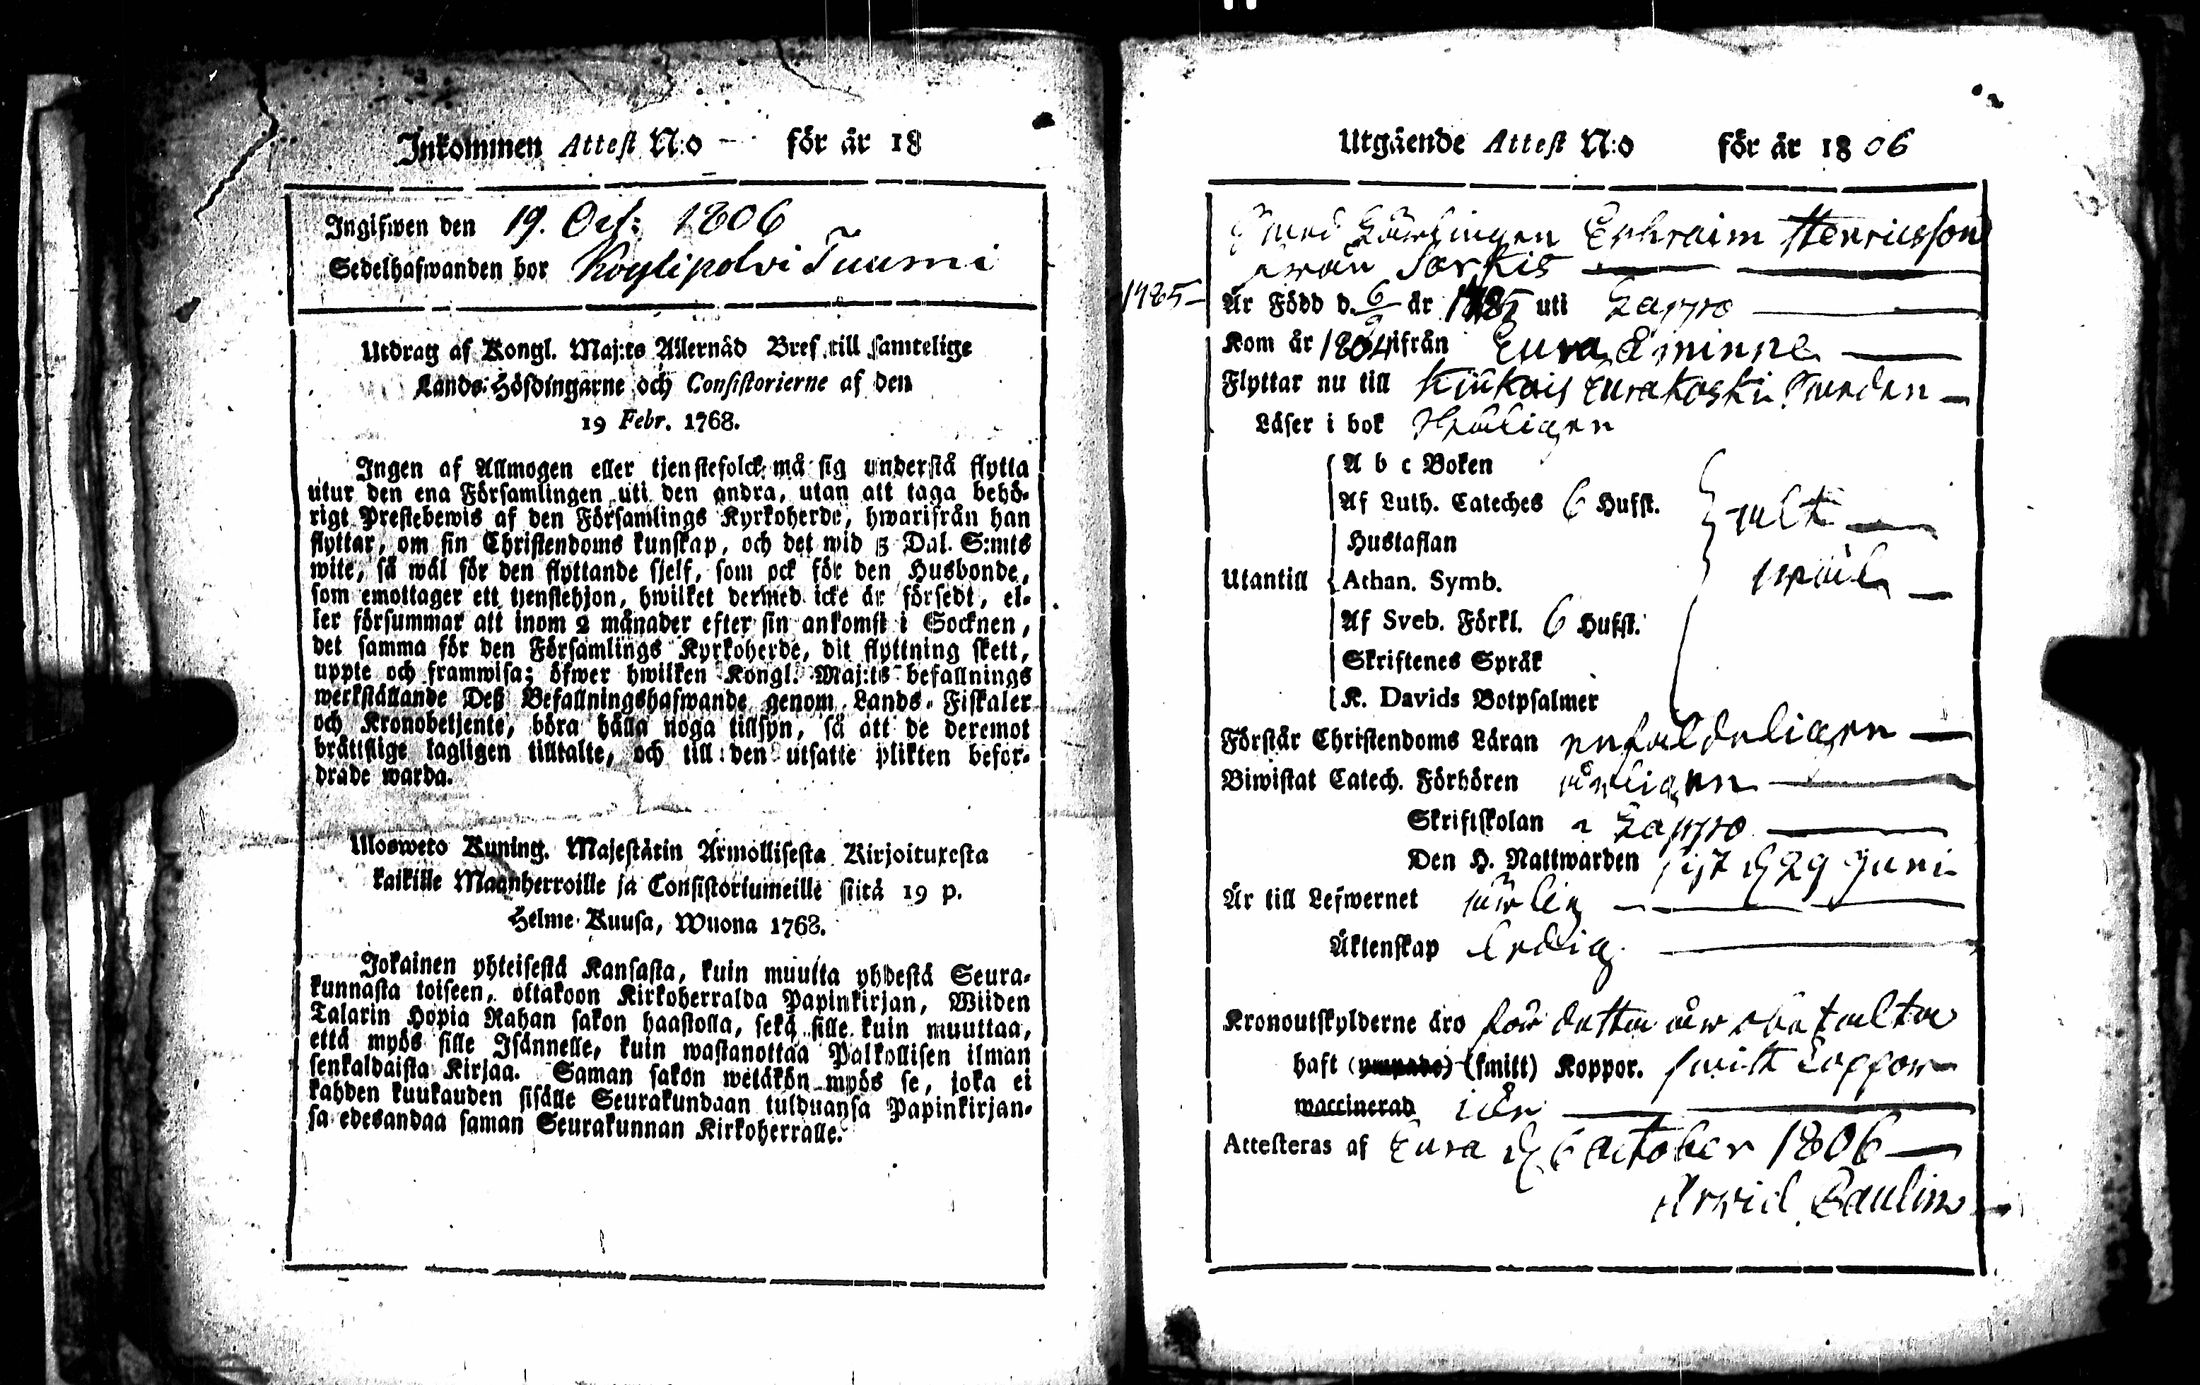 Inkommen Attest N:o — för år 18
Ingifwen den 19. Oct: 1806
Sedelhafwanden bor Koylipolvi Tuumi
Utdrag af Kongl. Maj:ts Allernåd Bref till samtelige
Lands-Höfdingarne och Consistorierne af den
19 Febr. 1768.
Ingen af Allmogen eller tjenstefolck må sig understå flytta
utur den ena Församlingen uti den andra, utan att taga behö-
rigt Prestebewis af den Församlings Kyrkoherde, hwarifrån han
flyttar, om sin Christendoms kunskap, och det wid 5 Dal. S:mts
wite, så wäl för den flyttande sjelf, som ock för den Husbonde,
som emottager ett tjenstehjon, hwilket dermed icke är försedt, el-
ler försummar att inom 2 månader efter sin ankomst i Socknen,
det samma för den Församlings Kyrkoherde, dit flyttning skett,
uppte och framwisa; öfwer hwilken Kongl. Maj:ts befallnings
werkställande Deß Befallningshafwande genom Lands-Fiskaler
och Kronobetjente, böra hålla noga tillsyn, så att de deremot
bråttslige lagligen tilltalte, och till den utsatte plikten befor-
drade warda.
Ulosweto Kuning. Majestätin Armollisesta Kirjoituxesta
kaikille Maanherroille ja Consistoriumeille siitä 19 p.
Helme-Kuusa, Wuona 1768.
Jokainen yhteisestä Kansasta, kuin muutta yhdestä Seura-
kunnasta toiseen, ottakoon Kirkoherralda Papinkirjan, Wiiden
Talarin Hopia Rahan sakon haastolla, sekä sille kuin muuttaa,
että myös sille Isännelle, kuin wastanottaa Palkollisen ilman
senkaldaista Kirjaa. Saman sakon wetäkön myös se, joka ei
kahden kuukauden sisälle Seurakundaan tulduansa Papinkirjan-
sa edesandaa saman Seurakunnan Kirkoherralle.
Utgående Attest N:o för år 1806
Smed Lärlingen Ephraim Henricsson
ifrån Sorkis
1785 —
Är Född d. 6/9 år 1785 uti Lappo
Kom år 1804 ifrån Eura Eminne
Flyttar nu till Kiukais Eurakoski Smeden
Läser i bok Skäligen
A b c Boken
Af Luth. Cateches 6 Hufst.
Hustaflan
Utantill Athan. Symb.
Af Sveb. Förkl. 6 Hufst.
Skriftenes Språk
K. Davids Botpsalmer
alt
wäl
Förstår Christendoms Läran enfaldeligen
Biwistat Catech. Förhören årligen
Skriftskolan i Lappo
Den H. Nattwarden sist d 29 Juni
Är till Lefwernet ärlig
Äktenskap ledig
Kronoutskylderne äro för detta år obetalta
haft (ympade) (smitt) Koppor. smitt Coppor
waccinerad
Attesteras af Eura d 6 October 1806
Arwid Paulin